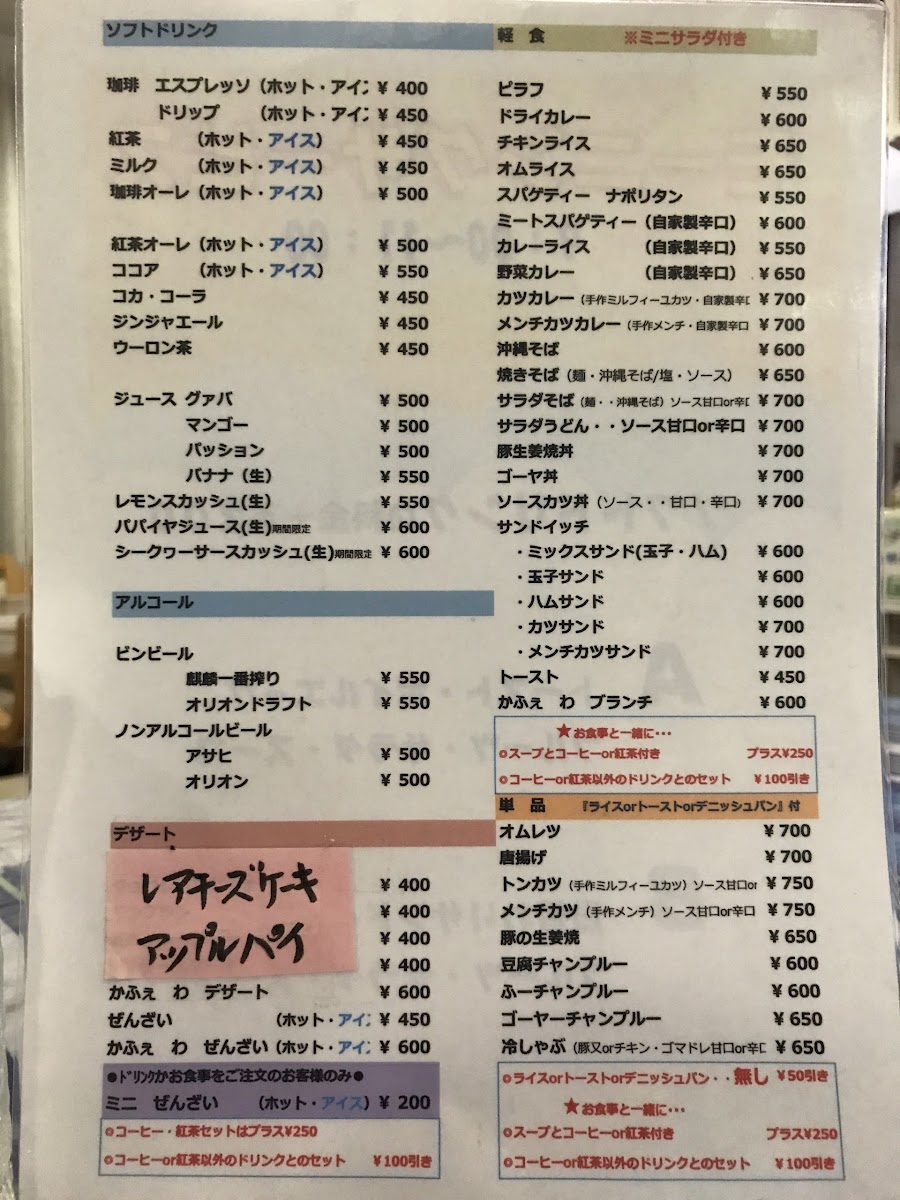 ソフトドリンク
珈琲 エスプレッソ（ホット・アイ ¥ 400
ドリップ （ホット・アイ ¥ 450
紅茶 （ホット・アイス） ¥ 450
ミルク （ホット・アイス） ¥ 450
珈琲オーレ（ホット・アイス） ¥ 500
紅茶オーレ（ホット・アイス） ¥ 500
ココア （ホット・アイス） ¥ 550
コカ・コーラ ¥ 450
ジンジャエール ¥ 450
ウーロン茶 ¥ 450
ジュース グァバ ¥ 500
マンゴー ¥ 500
パッション ¥ 500
バナナ（生） ¥ 550
レモンスカッシュ(生) ¥ 550
パパイヤジュース(生)期間限定 ¥ 600
シークヮーサースカッシュ(生)期間限定 ¥ 600
アルコール
ビンビール
麒麟一番搾り ¥ 550
オリオンドラフト ¥ 550
ノンアルコールビール
アサヒ ¥ 500
オリオン ¥ 500
デザート
レアチーズケーキ ¥ 400
¥ 400
アップルパイ ¥ 400
¥ 400
かふぇ わ デザート ¥ 600
ぜんざい （ホット・アイ ¥ 450
かふぇ わ ぜんざい（ホット・アイ ¥ 600
●ドリンクかお食事をご注文のお客様のみ●
ミニ ぜんざい （ホット・アイス） ¥ 200
コーヒー・紅茶セットはプラス¥250
コーヒーor紅茶以外のドリンクとのセット ¥100引き
軽食 ※ミニサラダ付き
ピラフ ¥ 550
ドライカレー ¥ 600
チキンライス ¥ 650
オムライス ¥ 650
スパゲティー ナポリタン ¥ 550
ミートスパゲティー（自家製辛口） ¥ 600
カレーライス （自家製辛口） ¥ 550
野菜カレー （自家製辛口） ¥ 650
カツカレー（手作ミルフィーユカツ・自家製辛 ¥ 700
メンチカツカレー（手作メンチ・自家製辛口 ¥ 700
沖縄そば ¥ 600
焼きそば（麺・沖縄そば/塩・ソース） ¥ 650
サラダそば（麺・・沖縄そば）ソース甘口or辛 ¥ 700
サラダうどん・・ソース甘口or辛口 ¥ 700
豚生姜焼丼 ¥ 700
ゴーヤ丼 ¥ 700
ソースカツ丼（ソース・・甘口・辛口） ¥ 700
サンドイッチ
・ミックスサンド(玉子・ハム) ¥ 600
・玉子サンド ¥ 600
・ハムサンド ¥ 600
・カツサンド ¥ 700
・メンチカツサンド ¥ 700
トースト ¥ 450
かふぇ わ ブランチ ¥ 600
★お食事と一緒に・・・
スープとコーヒーor紅茶付き プラス¥250
コーヒーor紅茶以外のドリンクとのセット ¥100引き
単品 『ライスorトーストorデニッシュパン』付
オムレツ ¥ 700
唐揚げ ¥ 700
トンカツ（手作ミルフィーユカツ）ソース甘口or ¥ 750
メンチカツ（手作メンチ）ソース甘口or辛口 ¥ 750
豚の生姜焼 ¥ 650
豆腐チャンプルー ¥ 600
ふーチャンプルー ¥ 600
ゴーヤーチャンプルー ¥ 650
冷しゃぶ（豚又orチキン・ゴマドレ甘口or辛 ¥ 650
ライスorトーストorデニッシュパン・・無し ¥50引き
★お食事と一緒に・・・
スープとコーヒーor紅茶付き プラス¥250
コーヒーor紅茶以外のドリンクとのセット ¥100引き